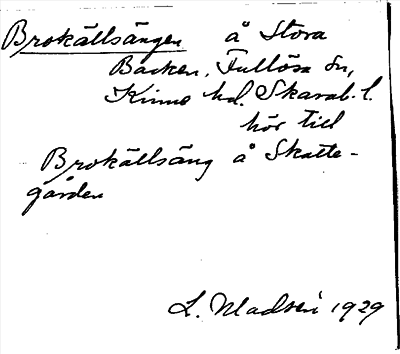 Brokällsängen å Stora
Backen, Fullösa sn,
Kinne hd. Skarab. l.
hör till
Brokällsäng å Skatte-
gården
L. Madsén 1929